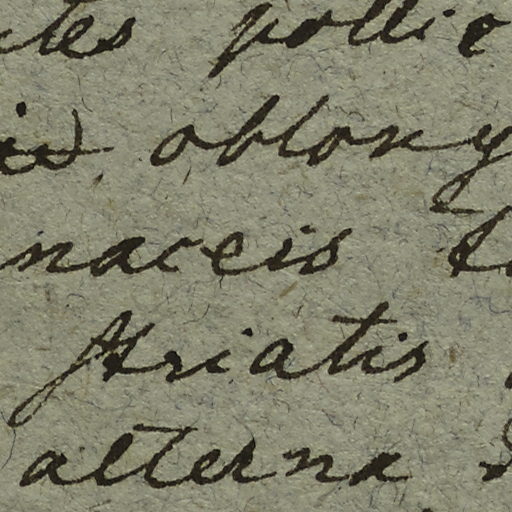 ites pollic
is oblong
naceis t
striatis
alterna